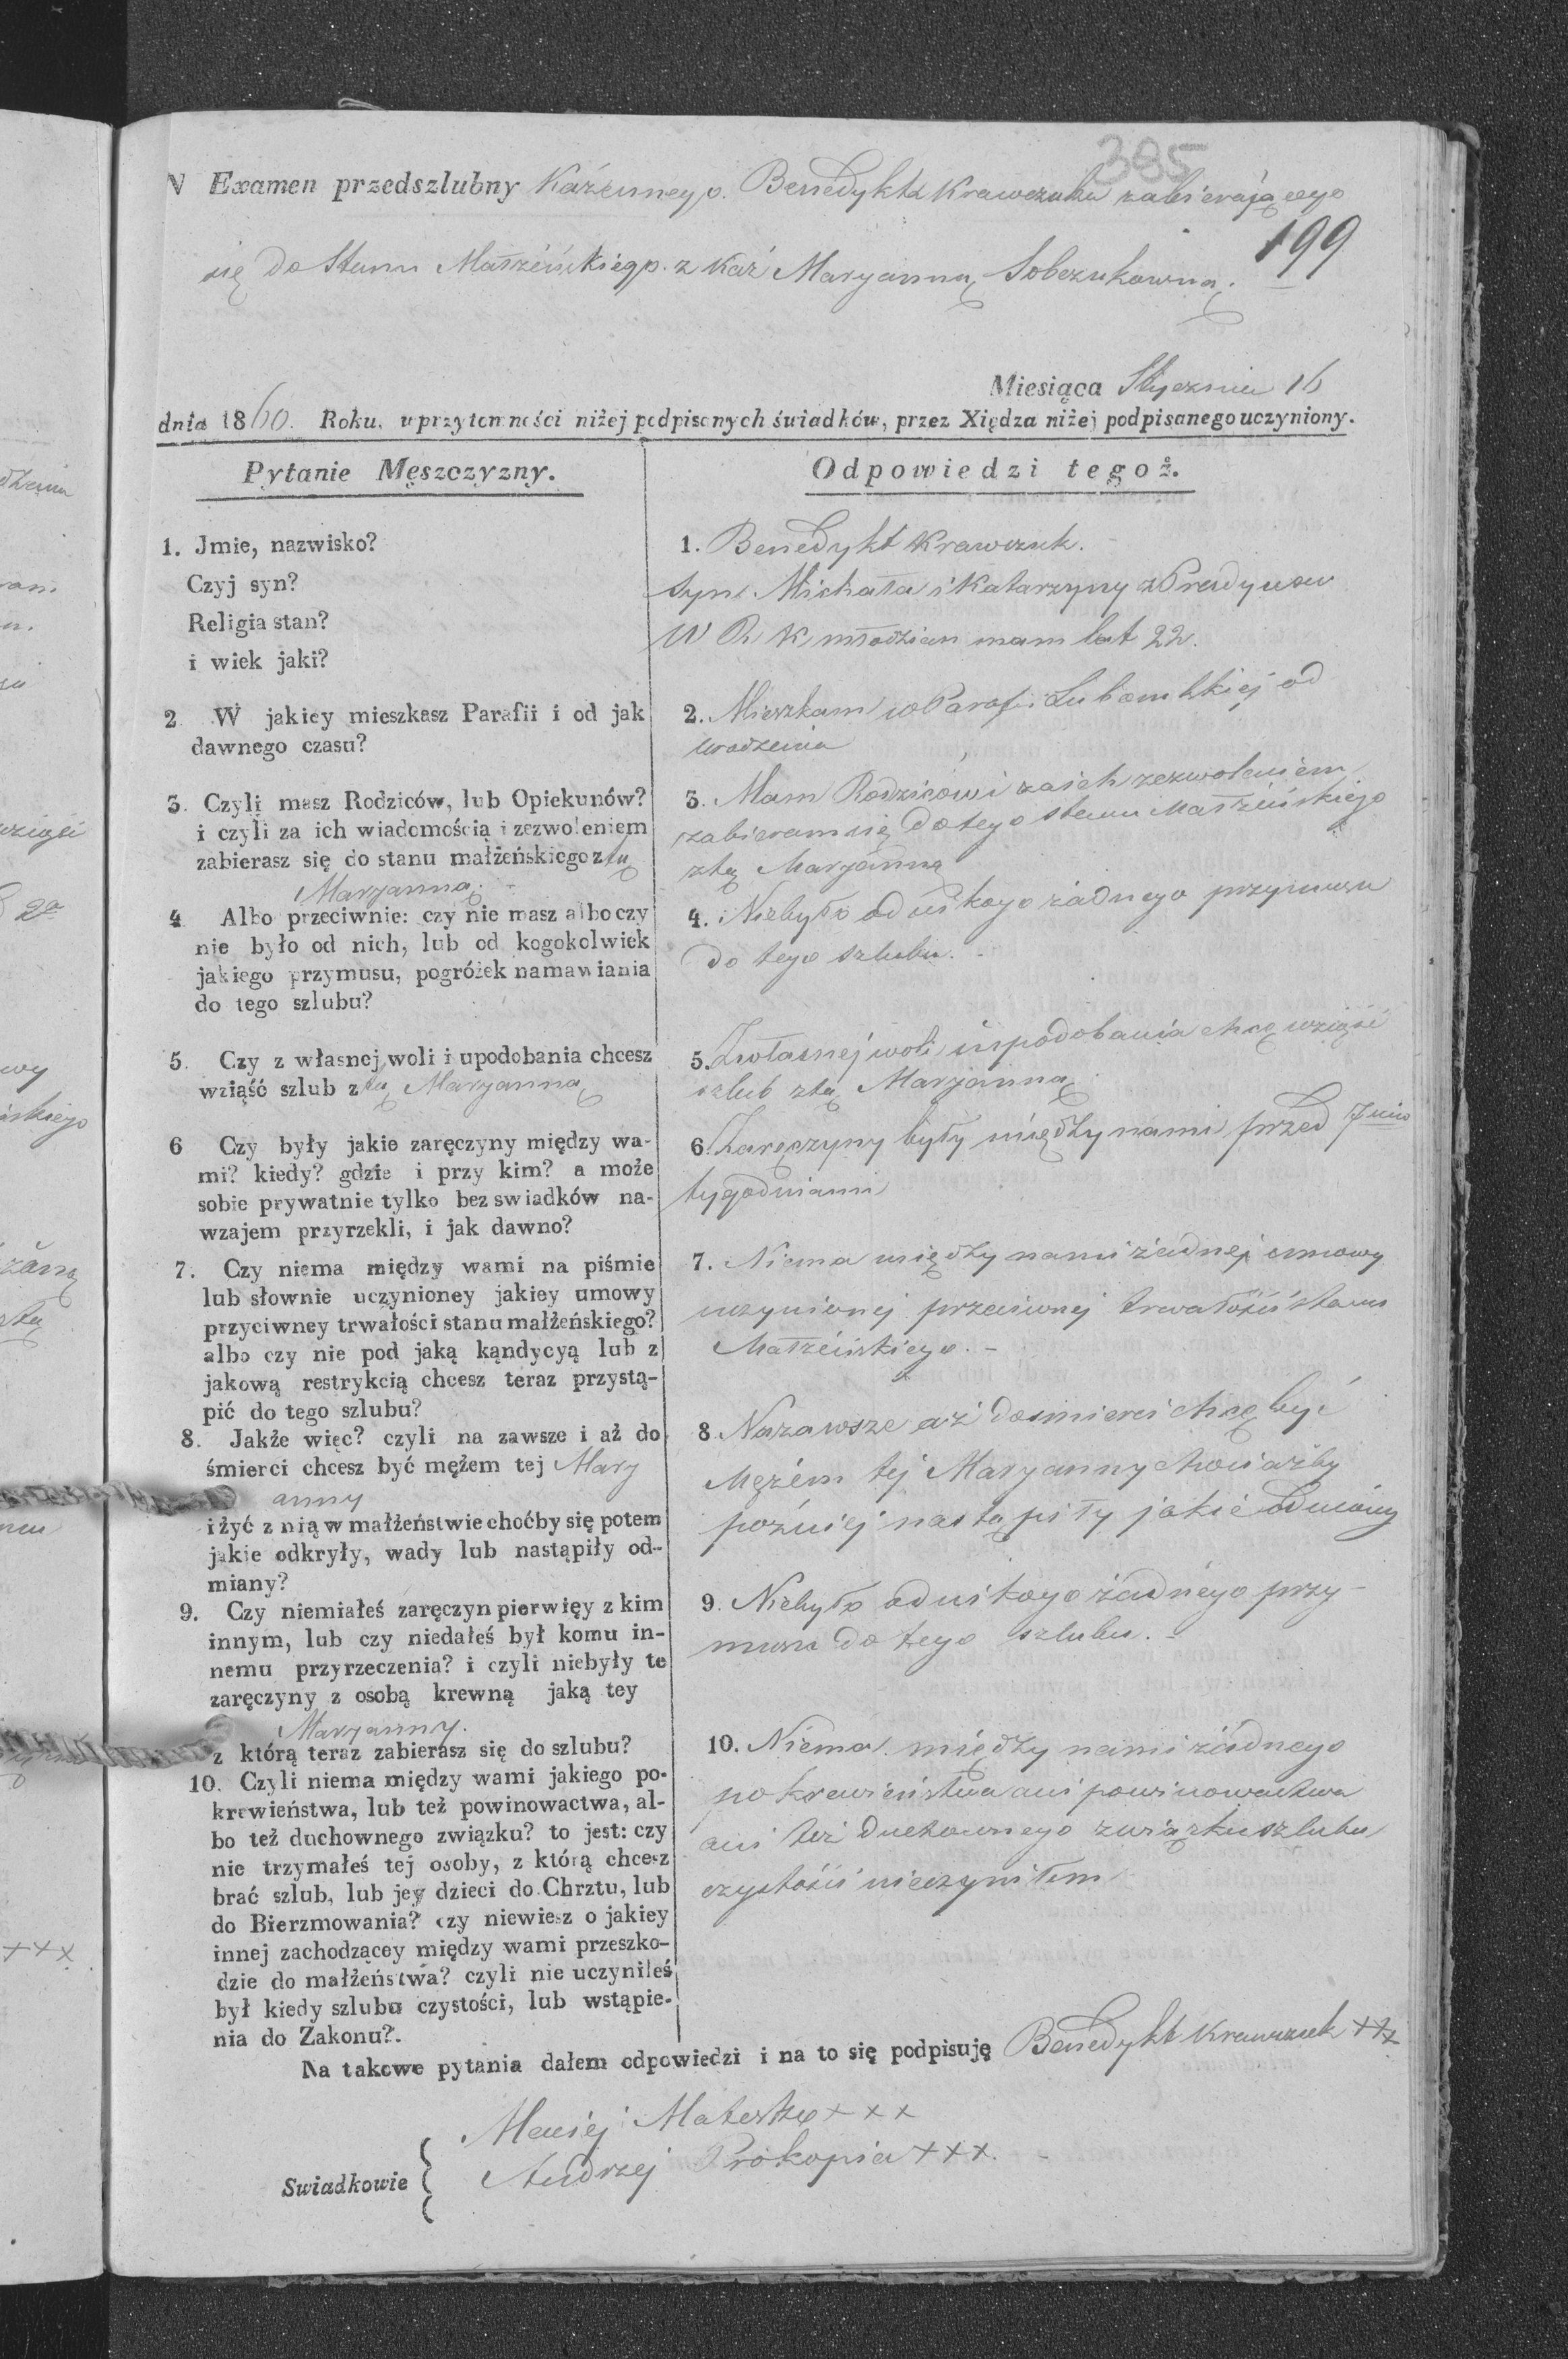 385
N Examen przedszlubny Kaźennego. Benedykta Krawczuka zabierającego
199
się do Stanu Małżeńskiego. z Kaź Maryanną Sobczukowną.
Miesiąca Stycznia 16
dnia 1860. Roku, w przytomności niżej podpisanych świadków, przez Xiędza niżej podpisanego uczyniony.
Pytanie Męszczyzny.
1. Jmie, nazwisko?
Czyj syn?
Religia stan?
i wiek jaki?
2 W jakiey mieszkasz Parafii i od jak
dawnego czasu?
3. Czyli masz Rodziców, lub Opiekunów?
i czyli za ich wiadomością i zezwoleniem
zabierasz się do stanu małżeńskiego z tą
Maryanną.
4 Albo przeciwnie: czy nie masz albo czy
nie było od nich, lub od kogokolwiek
jakiego przymusu, pogróżek namawiania
do tego szlubu?
5. Czy z własnej woli i upodobania chcesz
wziąść szlub z tą Maryanną
6 Czy były jakie zaręczyny między wa-
mi? kiedy? gdzie i przy kim? a może
sobie prywatnie tylko bez swiadków na-
wzajem przyrzekli, i jak dawno?
7. Czy niema między wami na piśmie
lub słownie uczynioney jakiey umowy
przyciwney trwałości stanu małżeńskiego?
albo czy nie pod jaką kąndycyą lub z
jakową restrykcią chcesz teraz przystą-
pić do tego szlubu?
8. Jakże więc? czyli na zawsze i aż do
śmierci chcesz być mężem tej Mary
anny
i żyć z nią w małżeństwie choćby się potem
jakie odkryły, wady lub nastąpiły od-
miany?
9. Czy niemiałeś zaręczyn pierwięy z kim
innym, lub czy niedałeś był komu in-
nemu przyrzeczenia? i czyli niebyły te
zaręczyny z osobą krewną jaką tey
Maryanny.
z którą teraz zabierasz się do szlubu?
10. Czyli niema między wami jakiego po-
krewieństwa, lub też powinowactwa, al-
bo też duchownego związku? to jest: czy
nie trzymałeś tej osoby, z którą chcesz
brać szlub, lub jey dzieci do Chrztu, lub
do Bierzmowania? czy niewiesz o jakiey
innej zachodzącey między wami przeszko-
dzie do małżeństwa? czyli nie uczyniłeś
był kiedy szlubu czystości, lub wstąpie-
nia do Zakonu?.
Odpowiedzi tegoż.
1. Benedykt Krawczuk.
Syn Michała i Katarzyny z
W R K młodzian mam lat 22.
2. Mieszkam w Parafii Lubomlskiej od
urodzenia
3. Mam Rodziców i za ich zezwoleniem
zabieram się do tego stanu Małżeńskiego
z tą Maryanną
4. Niebyło od nikogo żadnego przymusu
do tego szlubu. -
5. Zwłasnej woli i upodobania chcę wziąść
szlub z tą Maryanną
6. Zaręczyny były między nami przed
tygodniami
7. Niema między nami żadnej umowy
uczynionej przeciwnej trwałości stanu
Małżeńskiego. -
8. Nazawsze aż do śmierci chcę być
Mężem tej Maryanny chociażby
poźniej nastąpiły jakie odmiany
9. Niebyło od nikogo żadnego przy-
musu do tego szlubu. -
10. Niema między nami żadnego
pokrewieństwa ani powinowactwa
ani też duchownego związku szlubu
czystości nieczyniłem
Na takowe pytania dałem odpowiedzi i na to się podpisuję Benedykt Krawczuk +++
Swiadkowie
Maciej +++
Andrzej Prokopia +++.